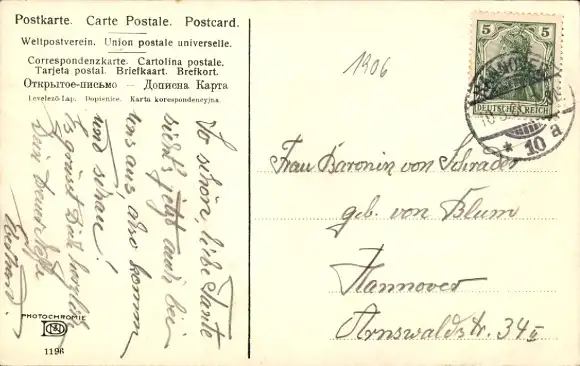 Postkarte. Carte Postale. Postcard.
Weltpostverein. Union postale universelle.
Correspondenzkarte. Cartolina postale.
Tarjeta postal. Briefkaart. Brefkort.
Открытое-письмо — Дописна Карта
Levelező-Lap. Dopisnice. Karta korespondencyjna.
1906
5 5
HANNOVER
DEUTSCHES REICH
* 10 a
So schön liebe Tante
sieht's jetzt auch bei
uns aus, also komm
und schau!
Es grüsst Dich herzlich
Dein
Frau Baronin von Schrader
geb. von Blum
Hannover
Arnswaldstr. 34 II
PHOTOCHROMIE
1196